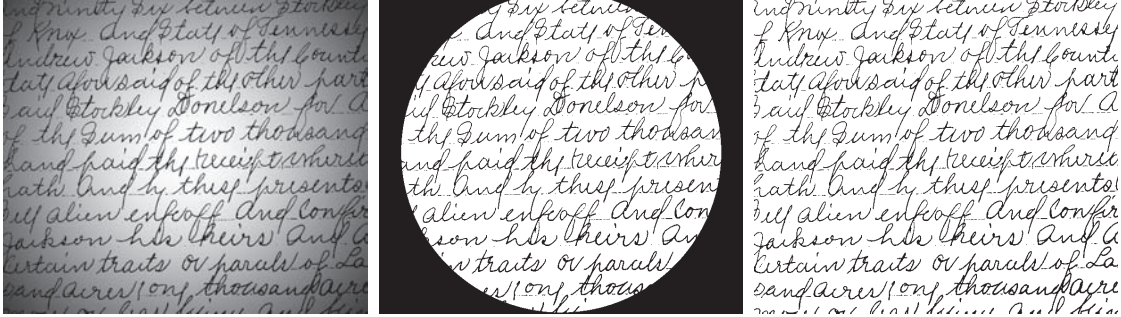 Six between Stockley
of Knox. And Stats of Tennessey
Andrew Jackson of ths County
tats Aforesaid of ths other part
aid Stockley Donelson for A
of ths Sum of two thousand
hand paid ths receipt wheri
hath And by thess presents
alien enfeoff And Confir
Jackson his heirs And A
Certain traits or parcels of La
sand Acres ong thousand Acre
or less And
Six between
And Stats of Ten
rew Jackson of ths Count
ts Aforesaid of ths other part
aid Stockley Donelson for
ths Sum of two thousan
and paid ths receipt wher
th And by thess presen
alien enfeoff And Con
kson his heirs An
in traits or parcels
es ong thousan
Six between Stockley
of Knox. And Stats of Tennessey
Andrew Jackson of ths County
tats Aforesaid of ths other part
aid Stockley Donelson for A
of ths Sum of two thousand
hand paid ths receipt wheri
hath And by thess presents
alien enfeoff And Confir
Jackson his heirs And A
Certain traits or parcels of La
sand Acres ong thousand Acre
or less And